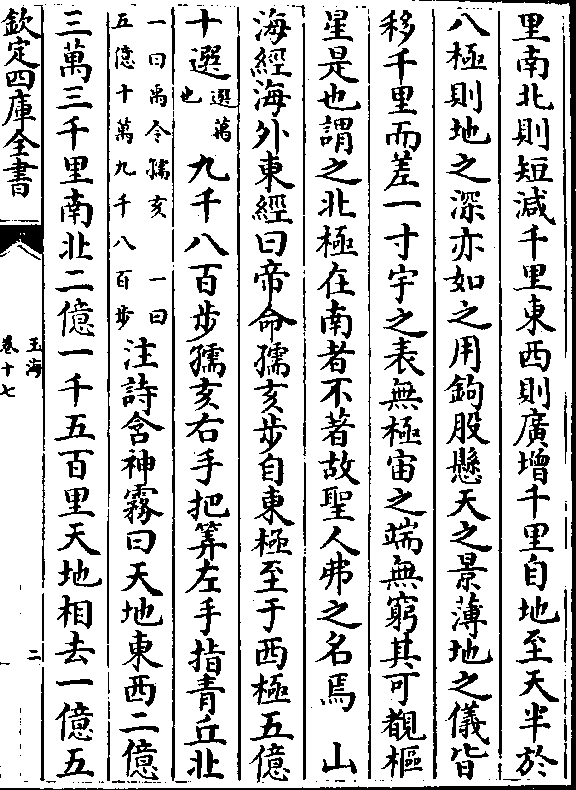 里南北則短減千里東西則廣增千里自地至天半於
八極則地之深亦如之用鉤股懸天之景薄地之儀皆
移千里而差一寸宇之表無極宙之端無窮其可覩樞
星是也謂之北極在南者不著故聖人弗之名焉 山
海經海外東經曰帝命孺亥步自東極至于西極五億
十選選萬也九千八百步孺亥右手把筭左手指青丘北
一曰禹令孺亥 一曰五億十萬九千八百步注詩含神霧曰天地東西二億
三萬三千里南北二億一千五百里天地相去一億五
欽定四庫全書
玉海
卷十七
二